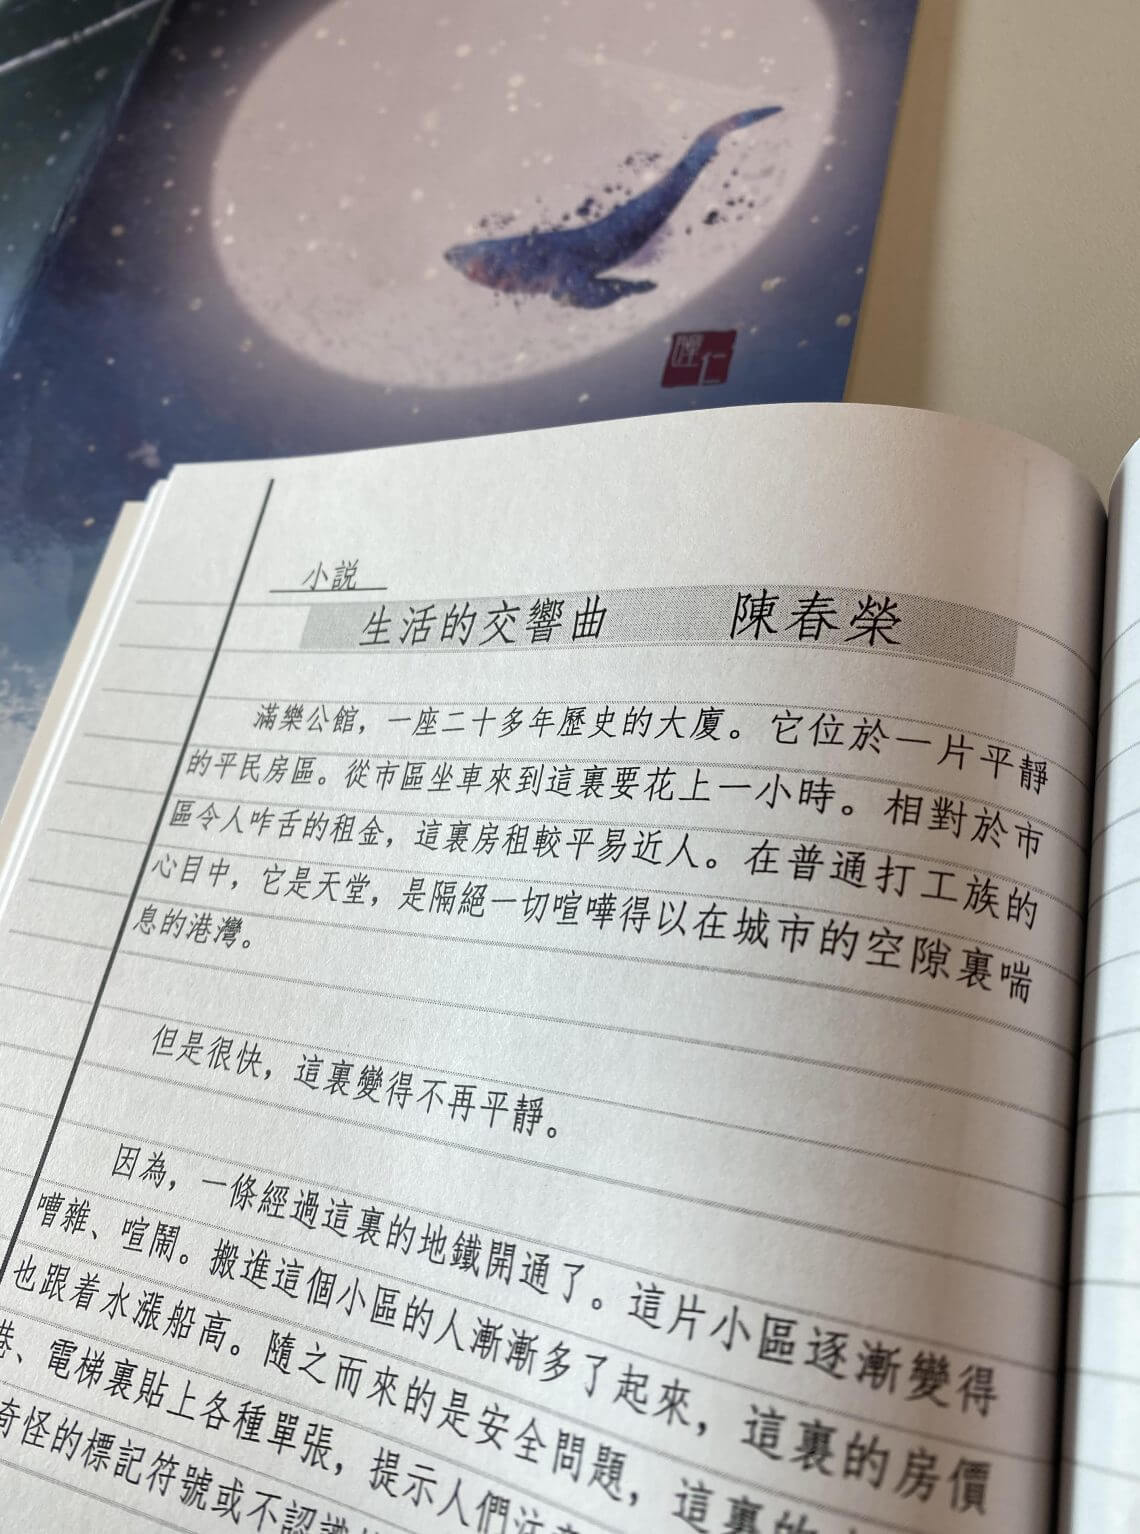 小説
生活的交響曲　陳春榮
滿樂公館，一座二十多年歷史的大廈。它位於一片平靜
的平民房區。從市區坐車來到這裏要花上一小時。相對於市
區令人咋舌的租金，這裏房租較平易近人。在普通打工族的
心目中，它是天堂，是隔絕一切喧嘩得以在城市的空隙裏喘
息的港灣。
但是很快，這裏變得不再平靜。
因為，一條經過這裏的地鐵開通了。這片小區逐漸變得
嘈雜、喧鬧。搬進這個小區的人漸漸多了起來，這裏的房價
也跟着水漲船高。隨之而來的是安全問題，這裏的
、電梯裏貼上各種單張，提示人們注意
奇怪的標記符號或不認識